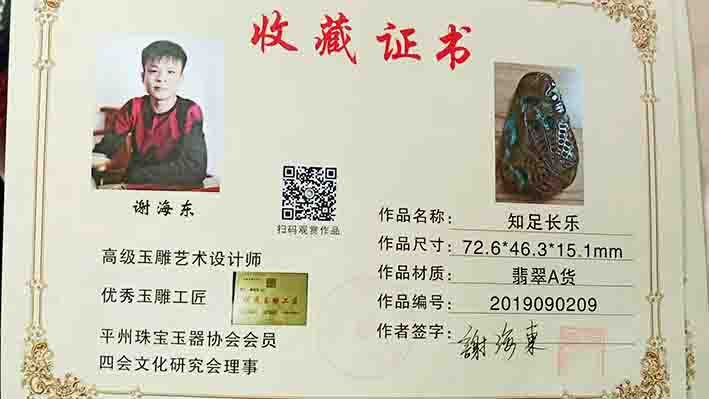 收藏证书
谢海东
扫码观赏作品
高级玉雕艺术设计师
优秀玉雕工匠
平州珠宝玉器协会会员
四会文化研究会理事
作品名称: 知足长乐
作品尺寸: 72.6*46.3*15.1mm
作品材质: 翡翠A货
作品编号: 2019090209
作者签字: 謝海東